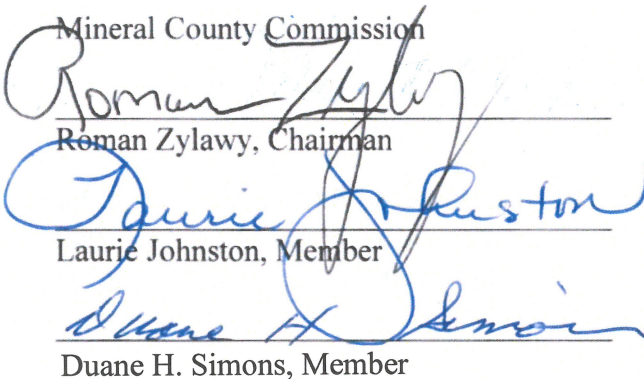 Mineral County Commission
Roman Zylawy
Roman Zylawy, Chairman
Laurie Johnston
Laurie Johnston, Member
Duane H Simons
Duane H. Simons, Member